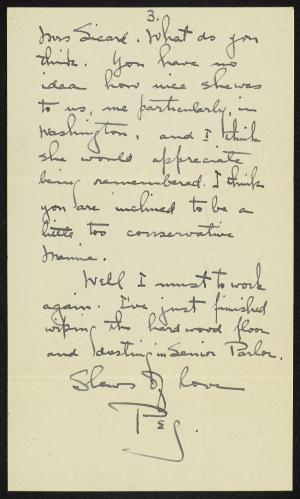 3.
Mrs Sicard. What do you
think. You have no
idea how nice she was
to us, me particularly, in
Washington, and I think
she would appreciate
being remembered. I think
you are inclined to be a
little too conservative
Mamie.
Well I must to work
again. I've just finished
wiping the hard wood floor
and dusting in Senior Parlor.
Slews of love
Peg.